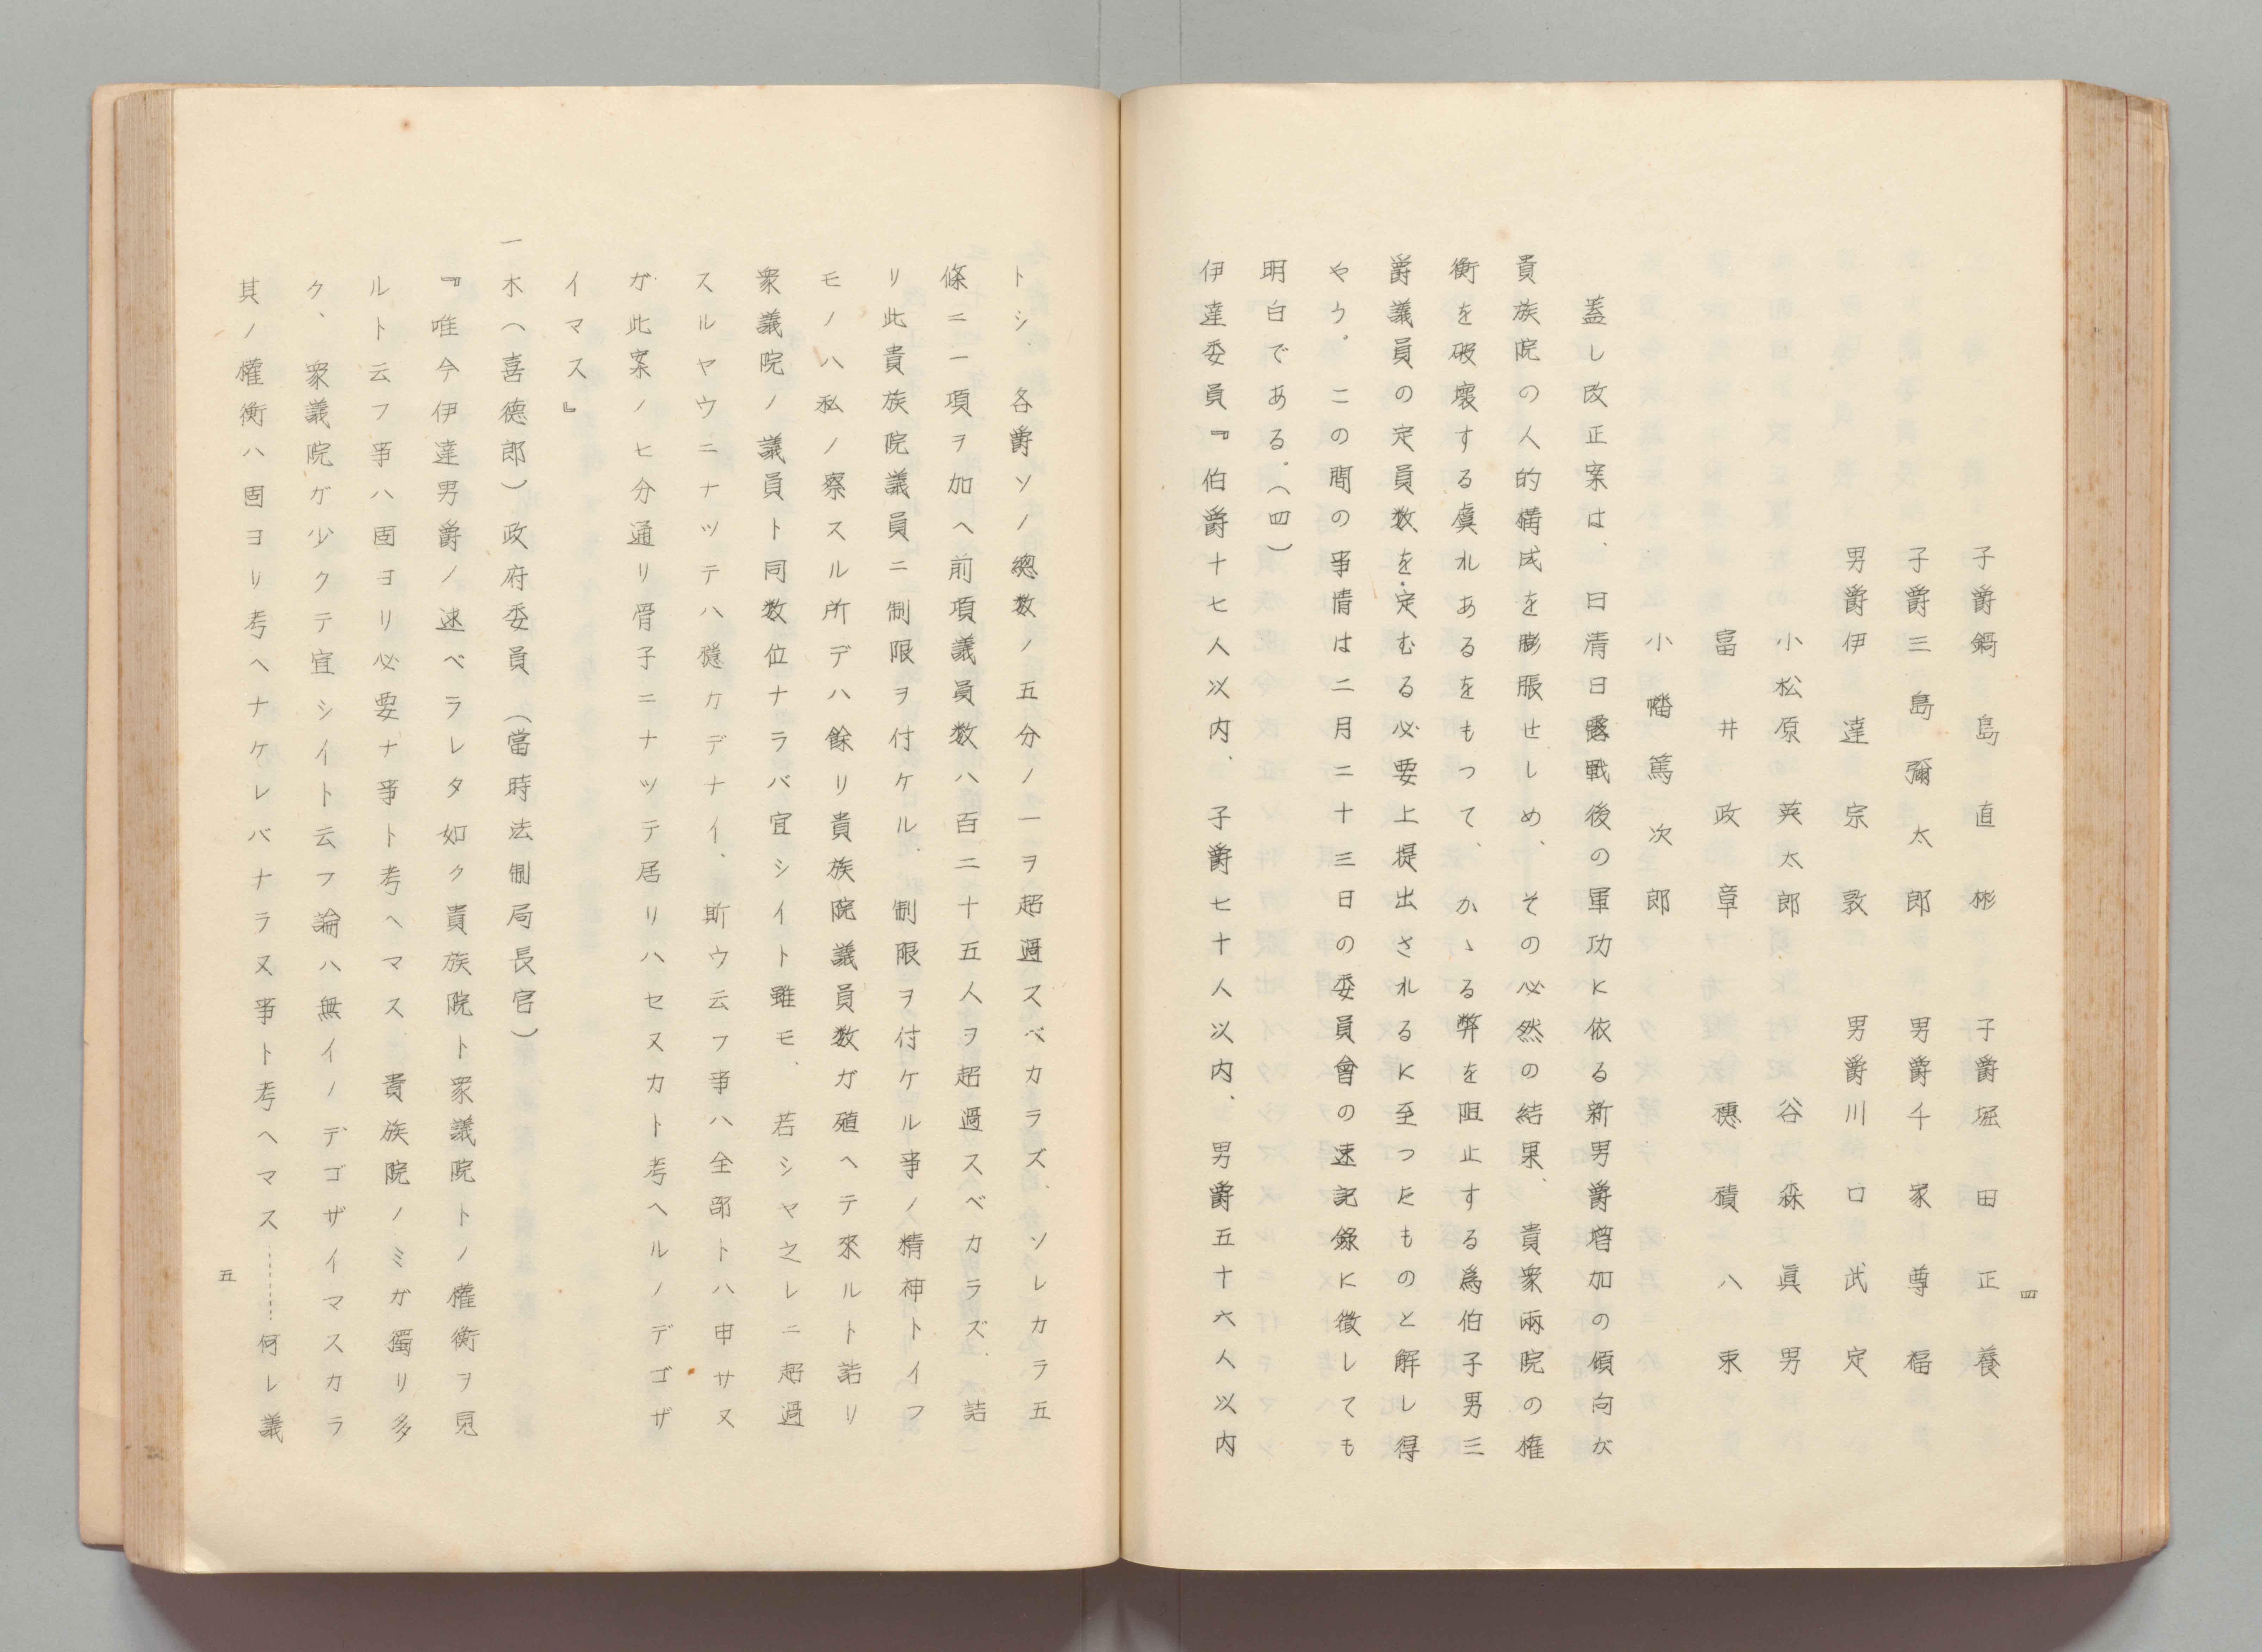 子爵鍋島直彬　子爵堀田正養
子爵三島彌太郎　男爵千家尊福
男爵伊達宗敦　男爵川口武定
小松原英太郎　谷森眞男
富井政章　穗積八束
小幡篤次郎
蓋し改正案は、日清日露戰後の軍功に依る新男爵增加の傾向が
貴族院の人的構成を膨脹せしめ、その必然の結果、貴衆兩院の權
衡を破壞する虞れあるをもつて、かゝる弊を阻止する爲伯子男三
爵議員の定員数を定むる必要上提出されるに至つたものと解し得
やう。この間の事情は二月二十三日の委員會の速記錄に徵しても
明白である。（四）
伊達委員『伯爵十七人以内、子爵七十人以内、男爵五十六人以内
四
トシ、各爵ソノ總数ノ五分ノ一ヲ超過スベカラズ、ソレカラ五
條ニ一項ヲ加ヘ前項議員数ハ百二十五人ヲ超過スベカラズ、詰
リ此貴族院議員ニ制限ヲ付ケル、制限ヲ付ケル事ノ精神トイフ
モノハ私ノ察スル所デハ餘リ貴族院議員数ガ殖ヘテ來ルト詰リ
衆議院ノ議員ト同数位ナラバ宜シイト雖モ、若シヤ之レニ超過
スルヤウニナツテハ穩カデナイ、斯ウ云フ事ハ全部トハ申サヌ
ガ此案ノヒ分通リ骨子ニナツテ居リハセヌカト考ヘルノデゴザ
イマス』
一木（喜德郎）政府委員（當時法制局長官）
『唯今伊達男爵ノ述ベラレタ如ク貴族院ト衆議院トノ權衡ヲ見
ルト云フ事ハ固ヨリ必要ナ事ト考ヘマス　貴族院ノミガ獨リ多
ク、衆議院ガ少クテ宜シイト云フ論ハ無イノデゴザイマスカラ
其ノ權衡ハ固ヨリ考ヘナケレバナラヌ事ト考ヘマス……何レ議
五